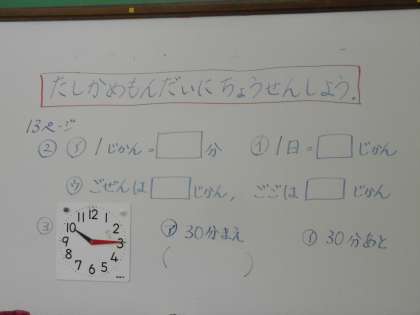 たしかめもんだいに ちょうせんしよう。
13ページ
② ㋐ 1じかん=□分 ㋑ 1日=□じかん
㋒ ごぜんは□じかん, ごごは□じかん
③ ㋐ 30分まえ ㋑ 30分あと
( )
12
11 1
10 2
9 3
8 4
7 6 5